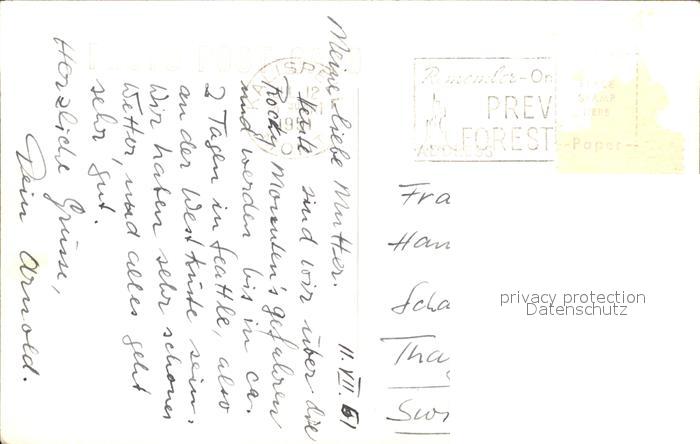 Meine liebe Mutter.
11. VII. 61
Heute sind wir über die
Rocky Mounten's gefahren
und werden bis in ca.
2 Tagen in Seattle, also
an der Westküste sein.
Wir haben sehr schönes
Wetter, und alles geht
sehr gut.
Herzliche Grüsse,
Dein Arnold.
Remember-On
PREV
FOREST
ADDRESS
PLACE
STAMP
HERE
--Paper--
Fra
Han
Scha
Tha
Swi
privacy protection
Datenschutz